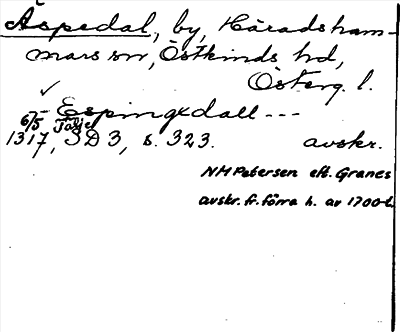 Äspedal, by, Häradsham-
mars sn, Östkinds hd,
Österg. l.
✓ Espingxdall ---
6/5 Tälje
1317, SD3, s. 323. avskr.
NM Petersen eft. Granes
avskr. fr. förra h. av 1700-t.